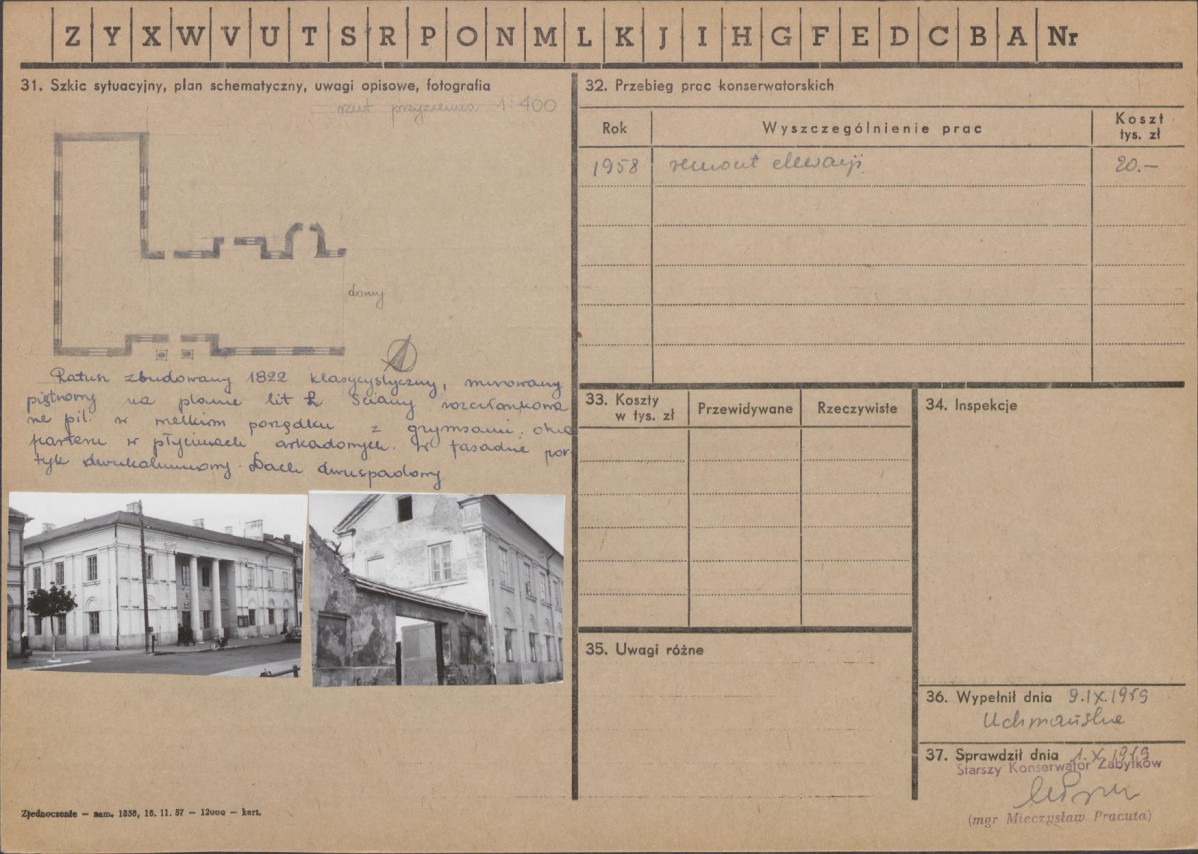 Z Y X W V U T S R P O N M L K J I H G F E D C B A Nr
31. Szkic sytuacyjny, plan schematyczny, uwagi opisowe, fotografia
rzut przyziemia 1:400
domy
Ratusz zbudowany 1822 klasycystyczny, murowany
piętrowy na planie lit Ł. Ściany rozczłonkowa
ne pil. w wielkim porządku z gzymsami. Okna
parteru w płycinach arkadowych. W fasadzie por-
tyk dwukolumnowy. Dach dwuspadowy
Zjednoczenie – zam. 1838, 16. 11. 57 – 12000 – kart.
32. Przebieg prac konserwatorskich
Rok
Wyszczególnienie prac
Koszt
tys. zł
1958 remont elewacji 20.—
33. Koszty
w tys. zł
Przewidywane
Rzeczywiste
34. Inspekcje
35. Uwagi różne
36. Wypełnił dnia 9.IX.1959
37. Sprawdził dnia 1.X.1959
Starszy Konserwator Zabytków
(mgr Mieczysław Pracuta)